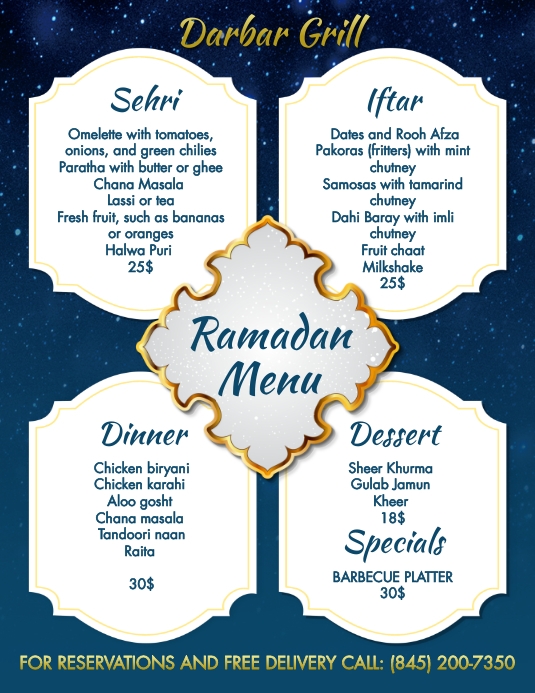 Darbar Grill
Sehri
Omelette with tomatoes,
onions, and green chilies
Paratha with butter or ghee
Chana Masala
Lassi or tea
Fresh fruit, such as bananas
or oranges
Halwa Puri
25$
Iftar
Dates and Rooh Afza
Pakoras (fritters) with mint
chutney
Samosas with tamarind
chutney
Dahi Baray with imli
chutney
Fruit chaat
Milkshake
25$
Ramadan
Menu
Dinner
Chicken biryani
Chicken karahi
Aloo gosht
Chana masala
Tandoori naan
Raita
30$
Dessert
Sheer Khurma
Gulab Jamun
Kheer
18$
Specials
BARBECUE PLATTER
30$
FOR RESERVATIONS AND FREE DELIVERY CALL: (845) 200-7350